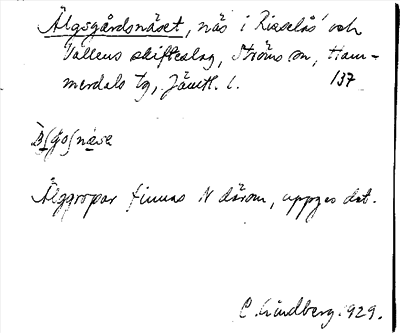 Älgsgårdsnäset, näs i Risselås' och
Tullens skifteslag, Ströms sn, Ham-
merdals tg, Jämtl. l. 137
Älggropar finnas N därom, uppges det.
C. Lindberg. 1929.